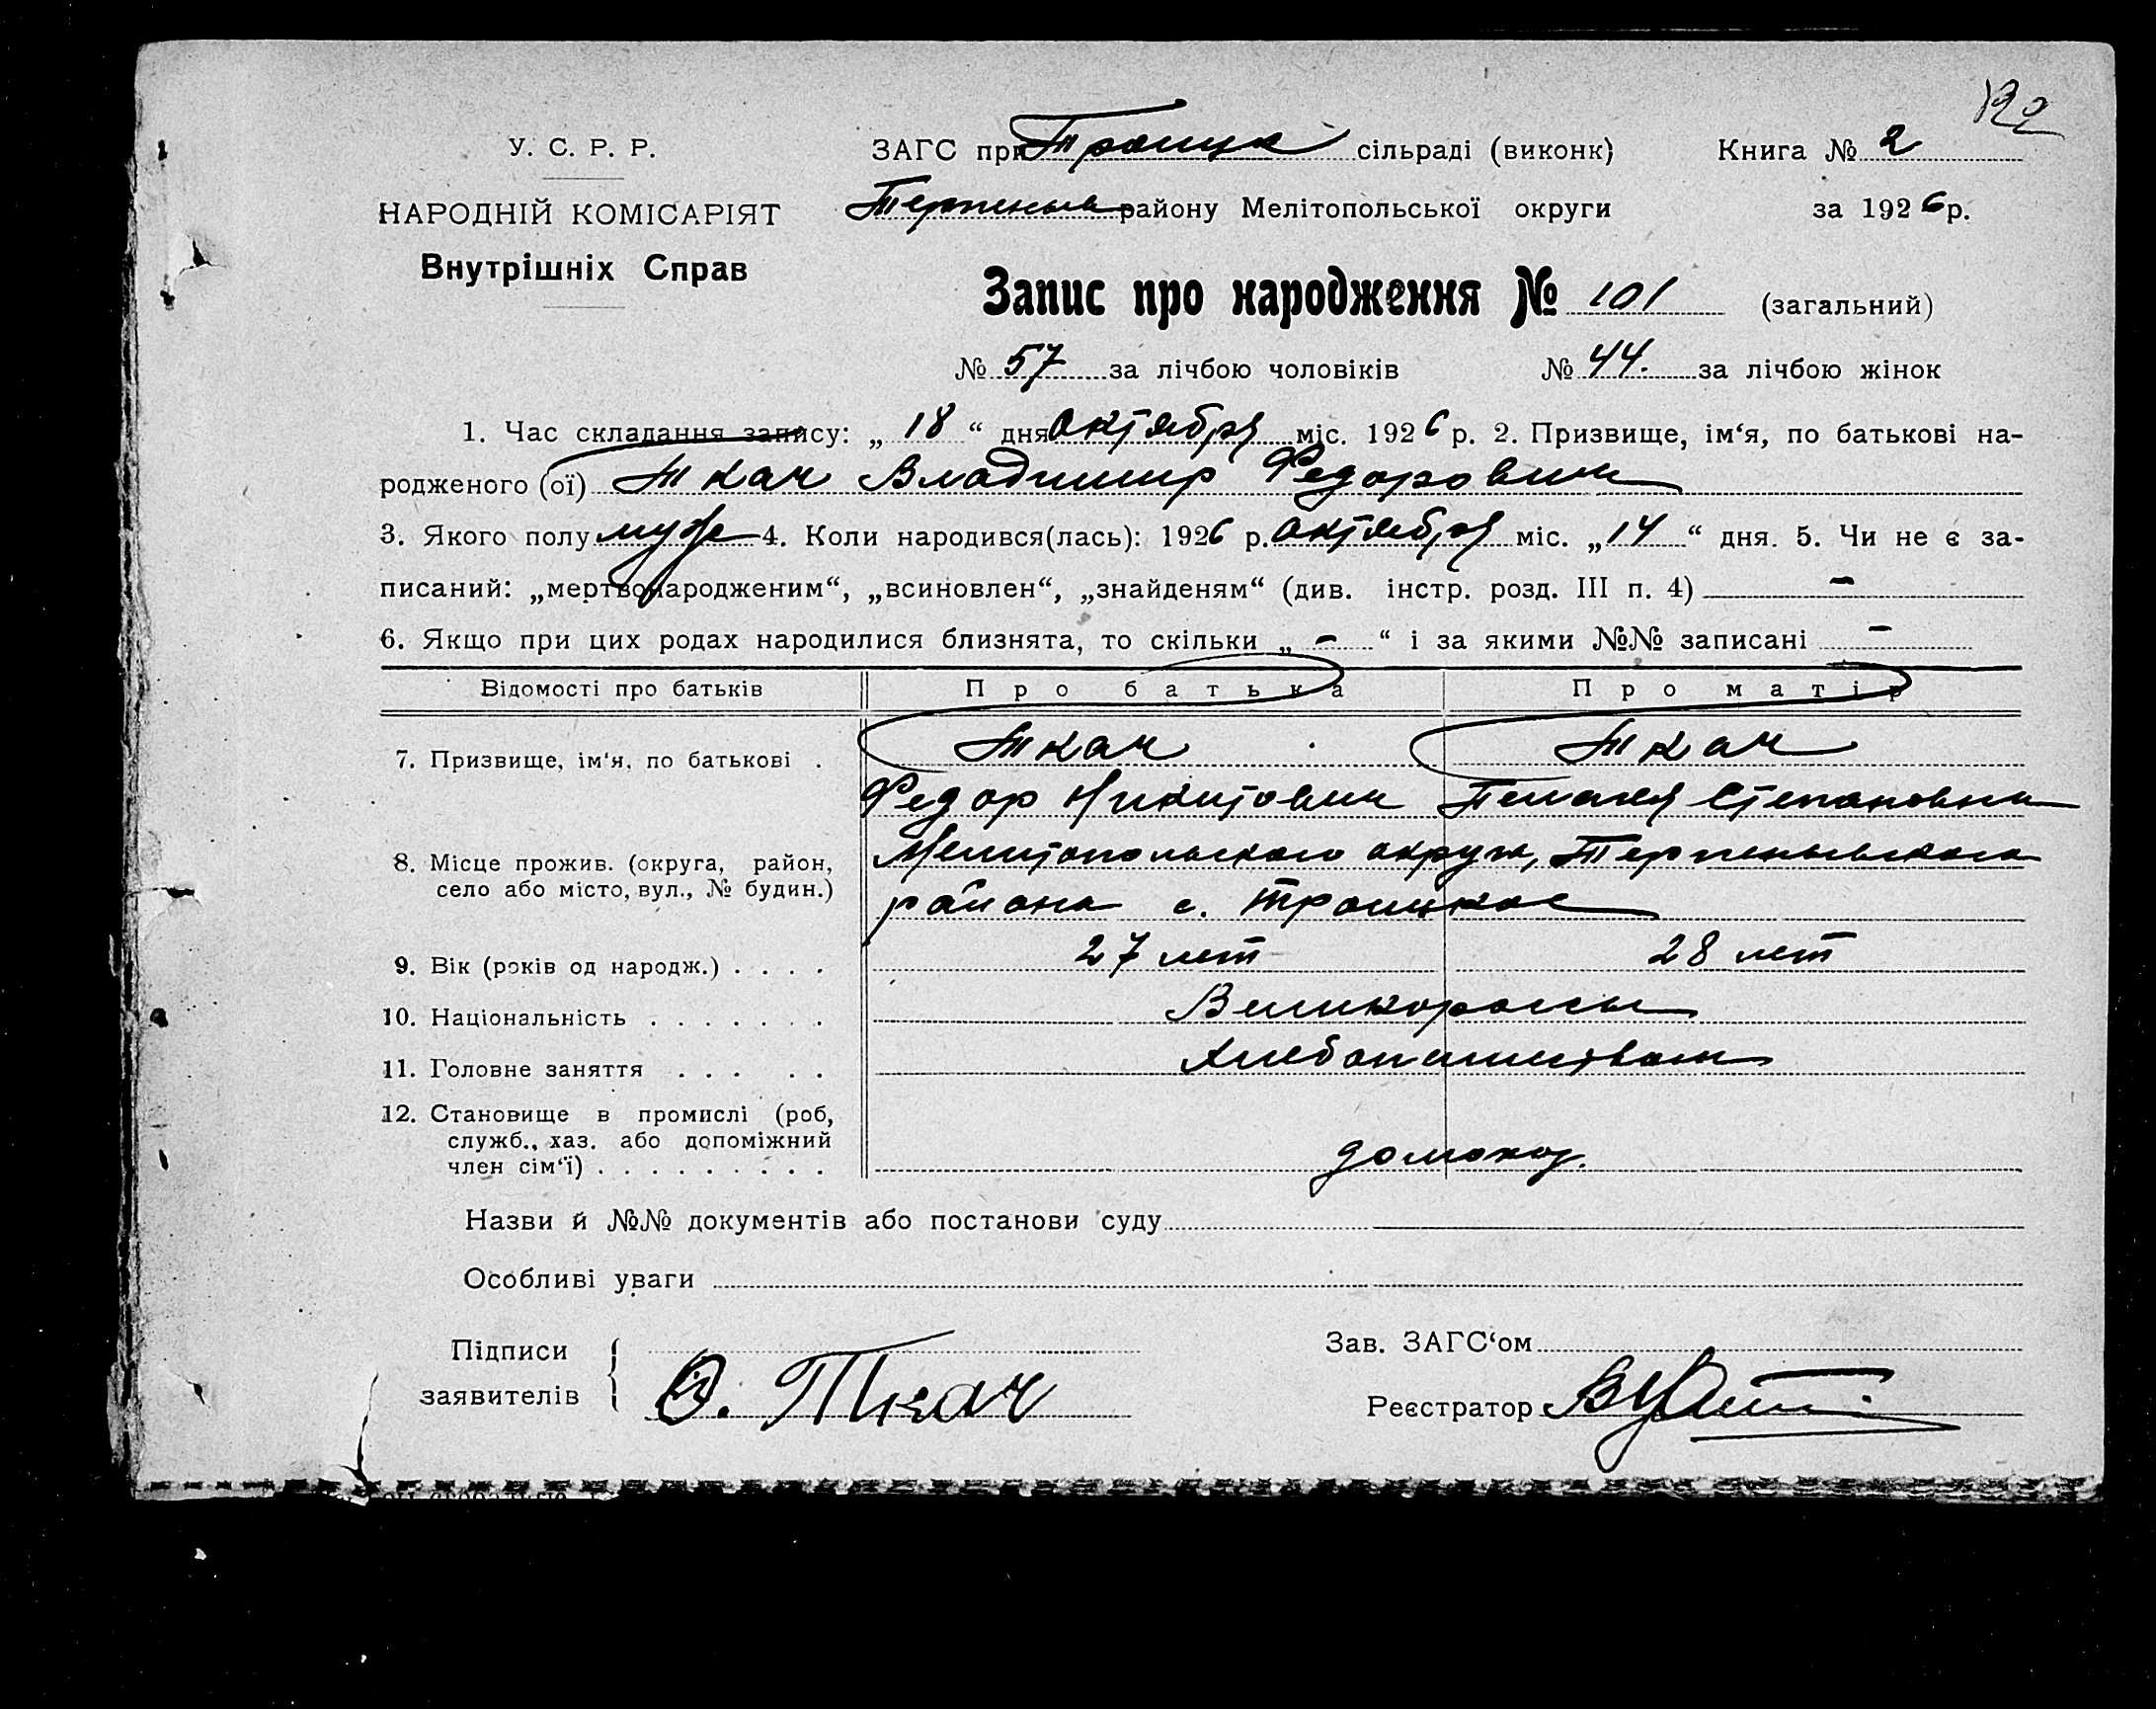 122
У. С. Р. Р.
ЗАГС при Троицк сільраді (виконк)
Книга № 2
НАРОДНІЙ КОМІСАРІЯТ
Терпеньев району Мелітопольської округи
за 1926 р.
Внутрішніх Справ
Запис про народження № 101 (загальний)
№ 57 за лічбою чоловіків № 44. за лічбою жінок
1. Час складання запису: „ 18 “ дня Октября міс. 1926 р. 2. Призвище, ім‘я, по батькові на-
родженого (ої) Ткач Владимир Федорович
3. Якого полу муж 4. Коли народився(лась): 1926 р. Октября міс. „ 14 “ дня. 5. Чи не є за-
писаний: „мертвонародженим“, „всиновлен“, „знайденям“ (див. інстр. розд. III п. 4) –
6. Якщо при цих родах народилися близнята, то скільки „ – “ і за якими №№ записані –
Відомості про батьків Про батька Про матір
7. Призвище, ім‘я, по батькові . Ткач Ткач
Федор Никитович Пелагея Степановна
8. Місце прожив. (округа, район, Мелитопольского округа, Терпеньевского
село або місто, вул., № будин.) района с. Троицкое
9. Вік (років од народж.) . . . . 27 лет 28 лет
10. Національність . . . . . . . Великороссы
11. Головне заняття . . . . . Хлебопашество
12. Становище в промислі (роб,
служб., хаз. або допоміжний
член сім‘ї) . . . . . . . . . домохоз.
Назви й №№ документів або постанови суду
Особливі уваги
Підписи
заявителів
Ф. Ткач
Зав. ЗАГС‘ом
Реєстратор